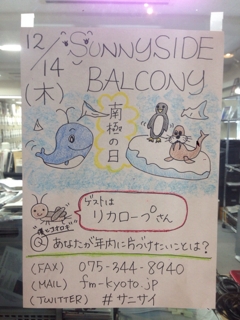 12/14
(木)
SUNNYSIDE
BALCONY
南極の日
ゲストは
リカロープさん
Q あなたが年内に片づけたいことは?
(FAX) 075-344-8940
(MAIL) fm-kyoto.jp
(TWITTER) #サニサイ